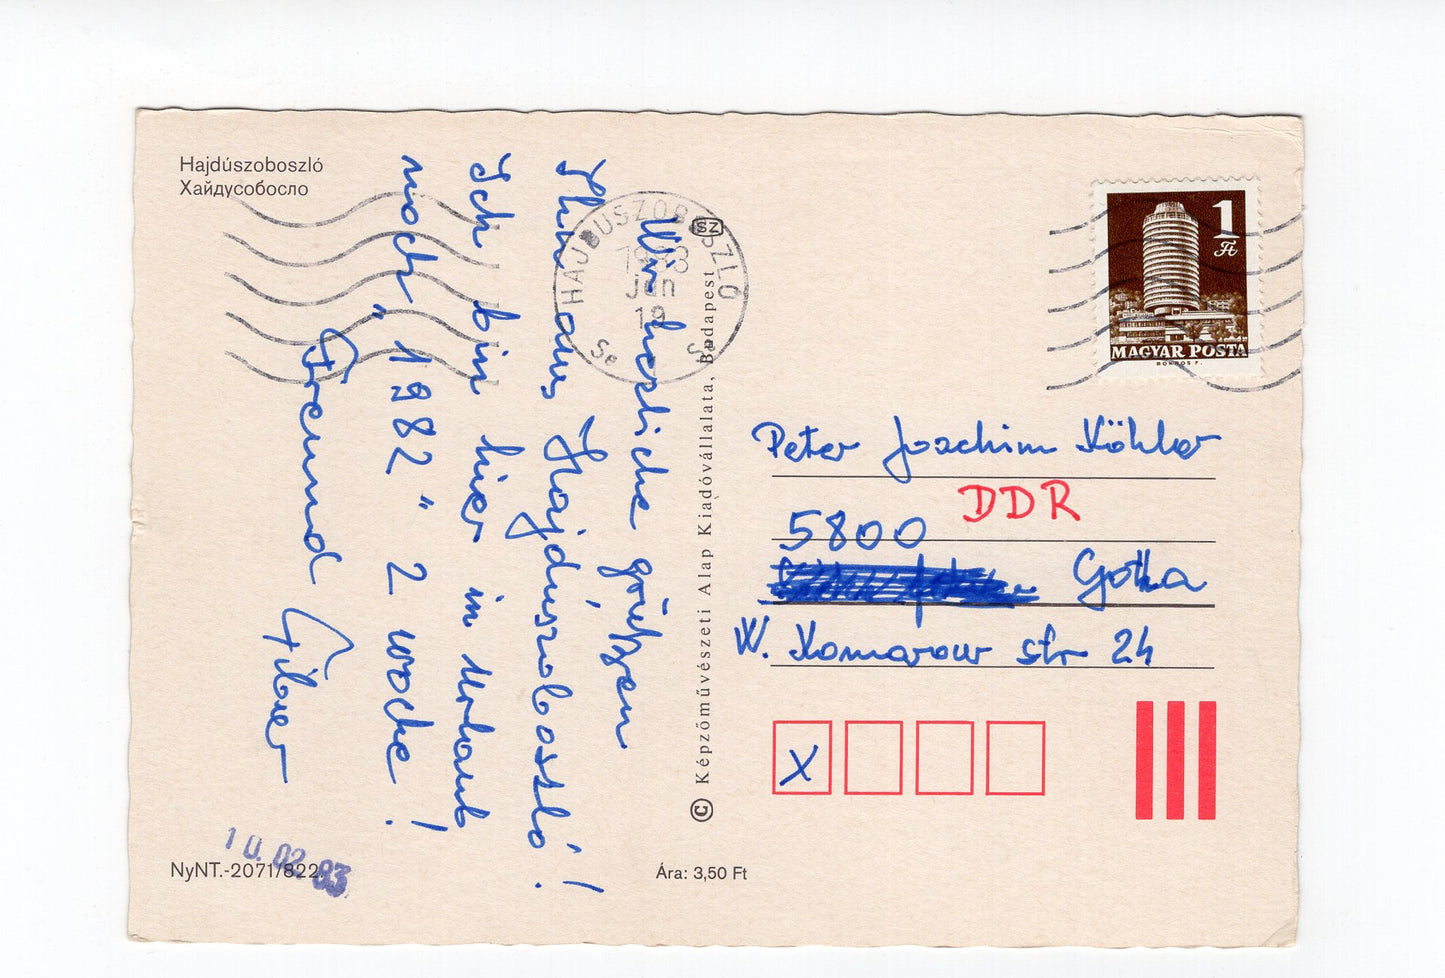 Hajdúszoboszló
Хайдусобосло
Wir herzliche grüßen
Ihnen aus Hajdúszoboszló!
Ich bin hier in Urlaub
noch "1982" 2 woche!
Freund Tibor
HAJDUSZOBOSZLÓ
SZ
1983
Jan
19
1 Ft
MAGYAR POSTA
Peter Joachim Köhler
DDR
5800
Gotha
W. Komarow str 24
X
© Képzőművészeti Alap Kiadóvállalata, Budapest
10.02.83
NyNT.-2071/822
Ára: 3,50 Ft